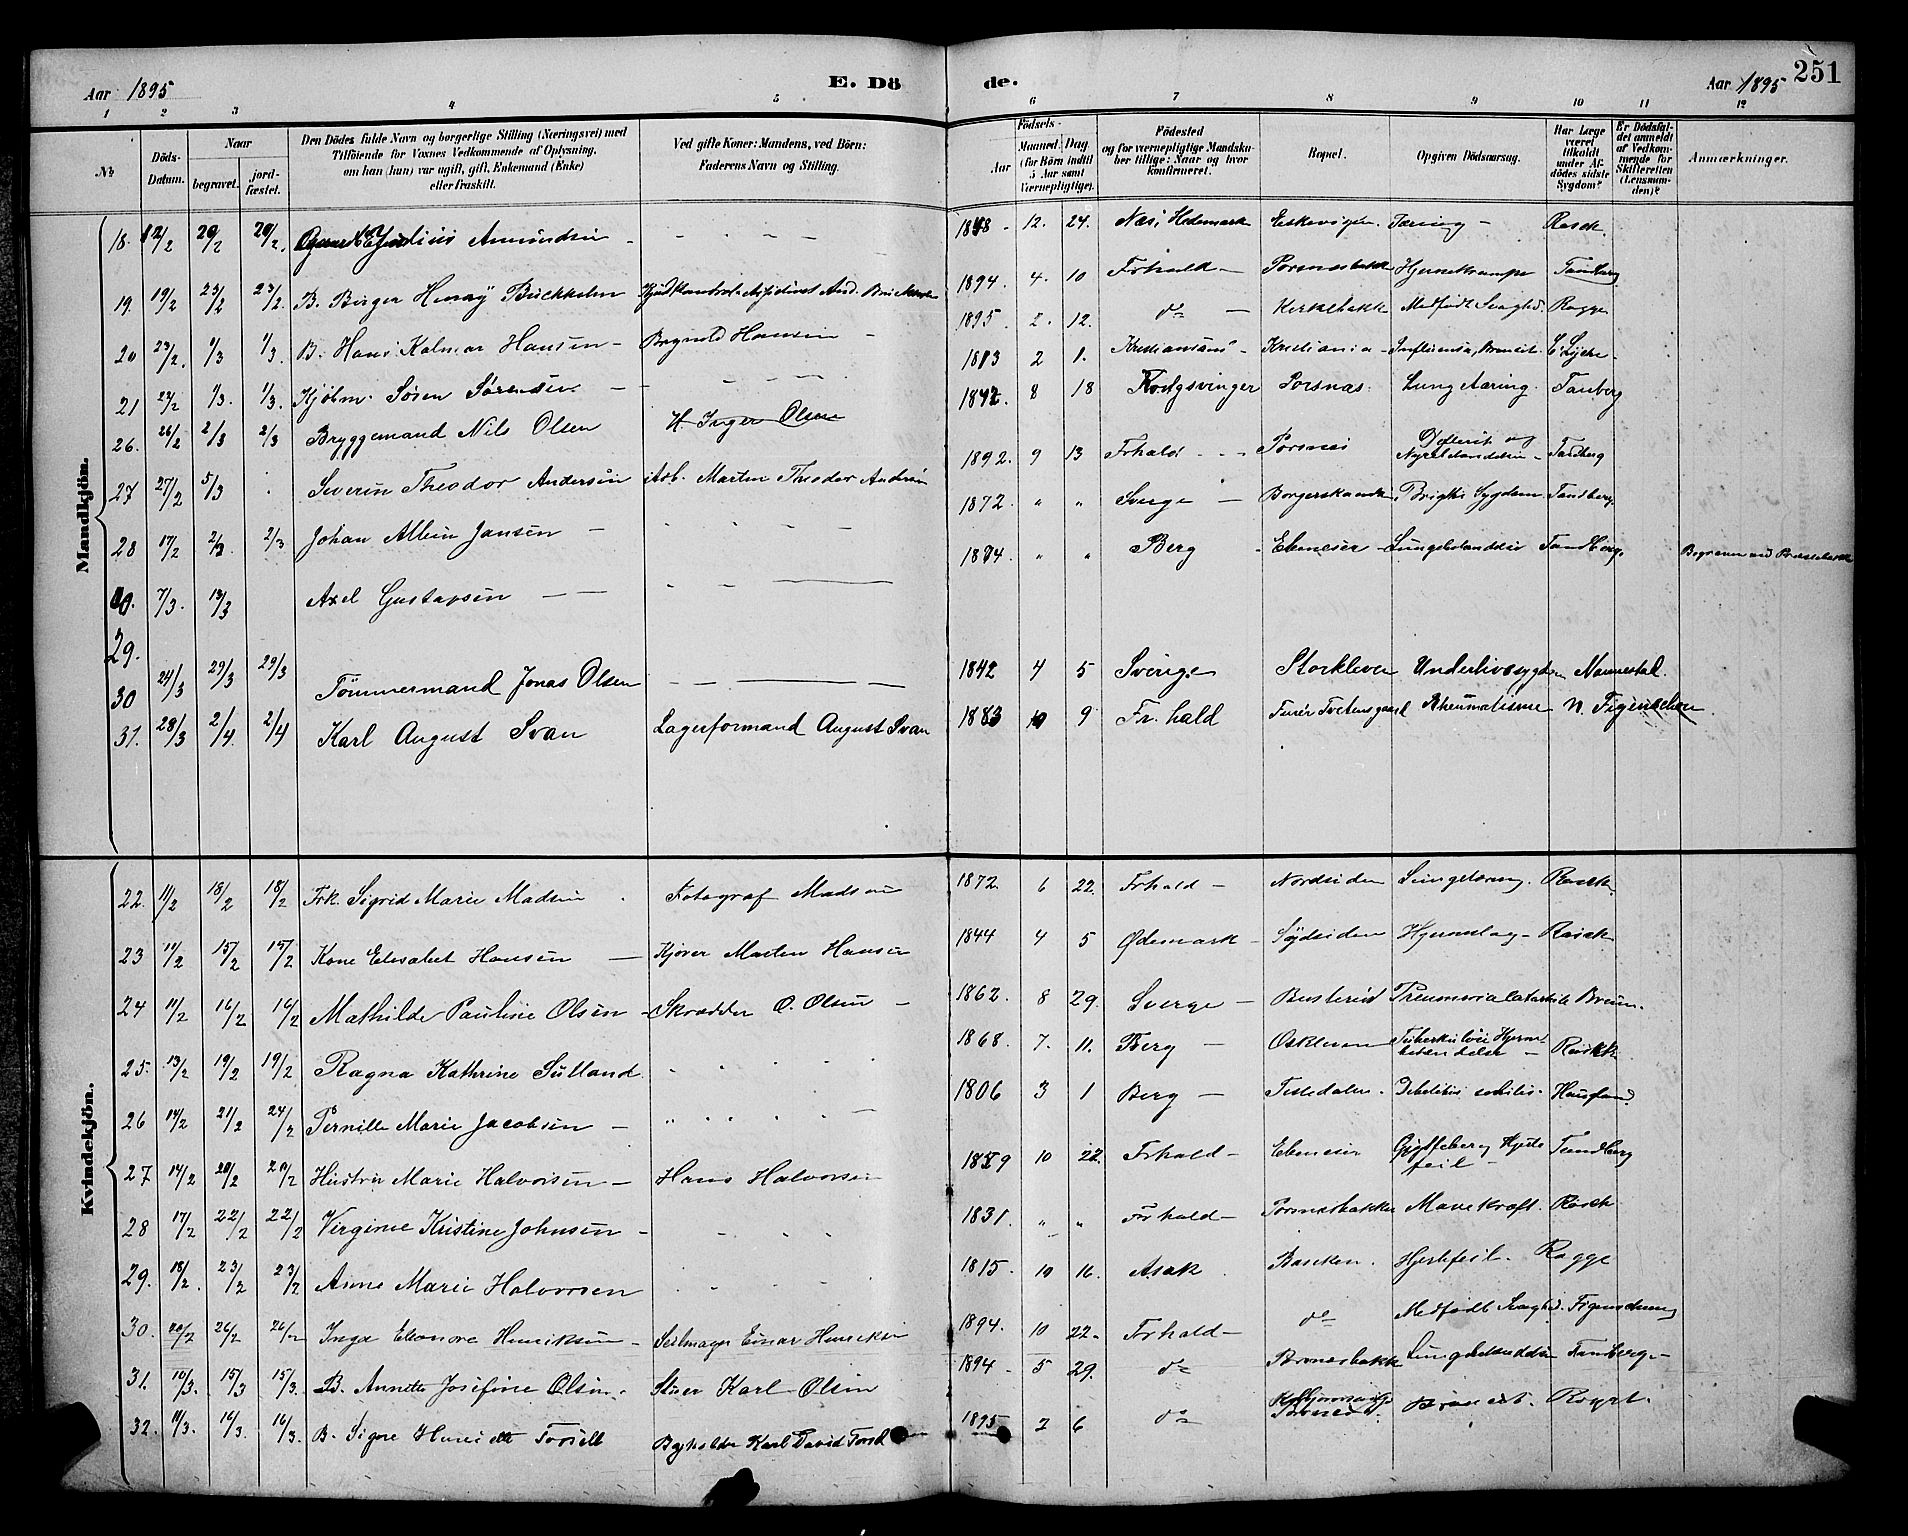 Aar 1895
E. Dö
de.
Aar 1895
251
1 2 3 4 5 6 7 8 9 10 11 12
Nr
Döds-Datum.
Naar
begravet.
jord-fæstet.
Den Dödes fulde Navn og borgerlige Stilling (Næringsvei) med
Tilföiende for Voxnes Vedkommende af Oplysning,
om han (hun) var ugift, gift, Enkemand (Enke)
eller fraskilt.
Ved gifte Koner: Mandens, ved Börn:
Faderens Navn og Stilling.
Födsels-
Aar
Maaned. Dag.
(for Börn indtil
5 Aar samt
Vernepligtige).
Födested
og for vernepligtige Mandsku-
ber tillige: Naar og hvor
konfirmeret.
Bopæl.
Opgiven Dödsaarsag.
Har Læge
været
tilkaldt
under Af-
dödes sidste
Sygdom?
Er Dödsfal-
det anmeldt
af Vedkom-
mende for
Skifteretten
(Lensman-
den)?
Anmærkninger.
Mandkjön.
18. 12/2 20/2 20/2. Amundsen - 12. 24. Næs, Hedemark Tæring - Rasch.
19. 19/2 23/2 23/2. B. Birger Henry Buckholm 1894. 4. 10 Frhald - Porsnesbakk Hjernekrampe Tandberg
20 23/2. 1/3 1/3. B. Hans Kalmar Hansen - Hansen - 1895. 2. 12. do - Kirkebakk Medfødt Svaghed. Rogge
21 1/3. 1/3. Kjøbm. Søren Sørensen - 1813 2 1. Kristiansund - Kristiania - Influensa, Broncit.
26. 26/2 2/3 2/3 Bryggemand Nils Olsen H. Inger Olsen 1842. 8 18 Kongsvinger Porsnæs. Lungetæring. Tanberg
27 27/2 5/3 Severin Theodor Andersen Arb. Marten Theodor Andersen 1892. 9 13 Frhald - - Porsnes Difterit og Tandberg
28 17/2 2/3. 2/3 Johan Albin Jansen - 1872. " " Sverge - Brights Sygdom. Tandberg.
7/3. 13/3 Axel Gustafsen - - 1874 " " Berg - Ebeneser - Lungebetændelse Tandberg.
29.
30 24/3 29/3 29/3 Tömmermand Jonas Olsen 1842 4 5 Sverige Storkleven Underlivssygdom Nannestad.
31. 28/3 2/4. 2/4 Karl August Svan Lagerformand August Svan 1883 10 9 Fr.hald Rheumatisme N. Figenschou.
Kvindekjön.
22. 11/2 18/2 18/2 Frk. Sigrid Marie Madsen Fotograf Madsen 1872. 6 22. Frhald - Nordsiden Lungetæring. Rasch.
23 11/2 15/2 15/2 Kone Elisabet Hansen - Kjører Marten Hansen 1844 4 5 Ødemark - Sydsiden Hjerneslag - Rasch
24 11/2 16/2 16/2 Mathilde Pauline Olsen - Skrædder O. Olsen - 1862. 8 29. Sverge - Busterud
25. 13/2 19/2 19/2 Ragna Kathrine Sülland. 1868. 7. 11. Berg - Oskleven Tuberkuløse Hjerne-betændelse - Rasch.
26 14/2 21/2 24/2 Pernille Marie Jacobsen - 1806 3 1 Berg - Tistedalen. Debilitas senilis.
27 14/2 20/2 20/2 Hustru Marie Halvorsen - Hans Halvorsen 1859 10 22. Frhald - Ebeneser Hjertefeil - Tandberg
28 17/2 22/2 22/2 Virginie Kristine Johnsen - 1831. " " Frhald - Porsnesbakken Mavekræft. Rasch
29. 18/2. 23/2 23/2 Anne Marie Halvorsen 1815. 10 16. Asak Banken. Hjertefeil. Rogge
30. 20/2 26/2 26/2 Inga Eleonore Henriksen - Seilmager Einar Henriksen 1894. 10 22. Frhald - do Medfødt Svaghed. Figenschoug
31. 10/3. 15/3 15/3. B. Annette Josefine Olsen. Stuer Karl Olsen 1894 - 5 29. do Porsnesbakke Lungebetændelse Tandberg -
32. 11/3. 16/3. 16/3. B. Signe Henriette Torsell Karl David Torsell 1895 2 6 do Broncit.